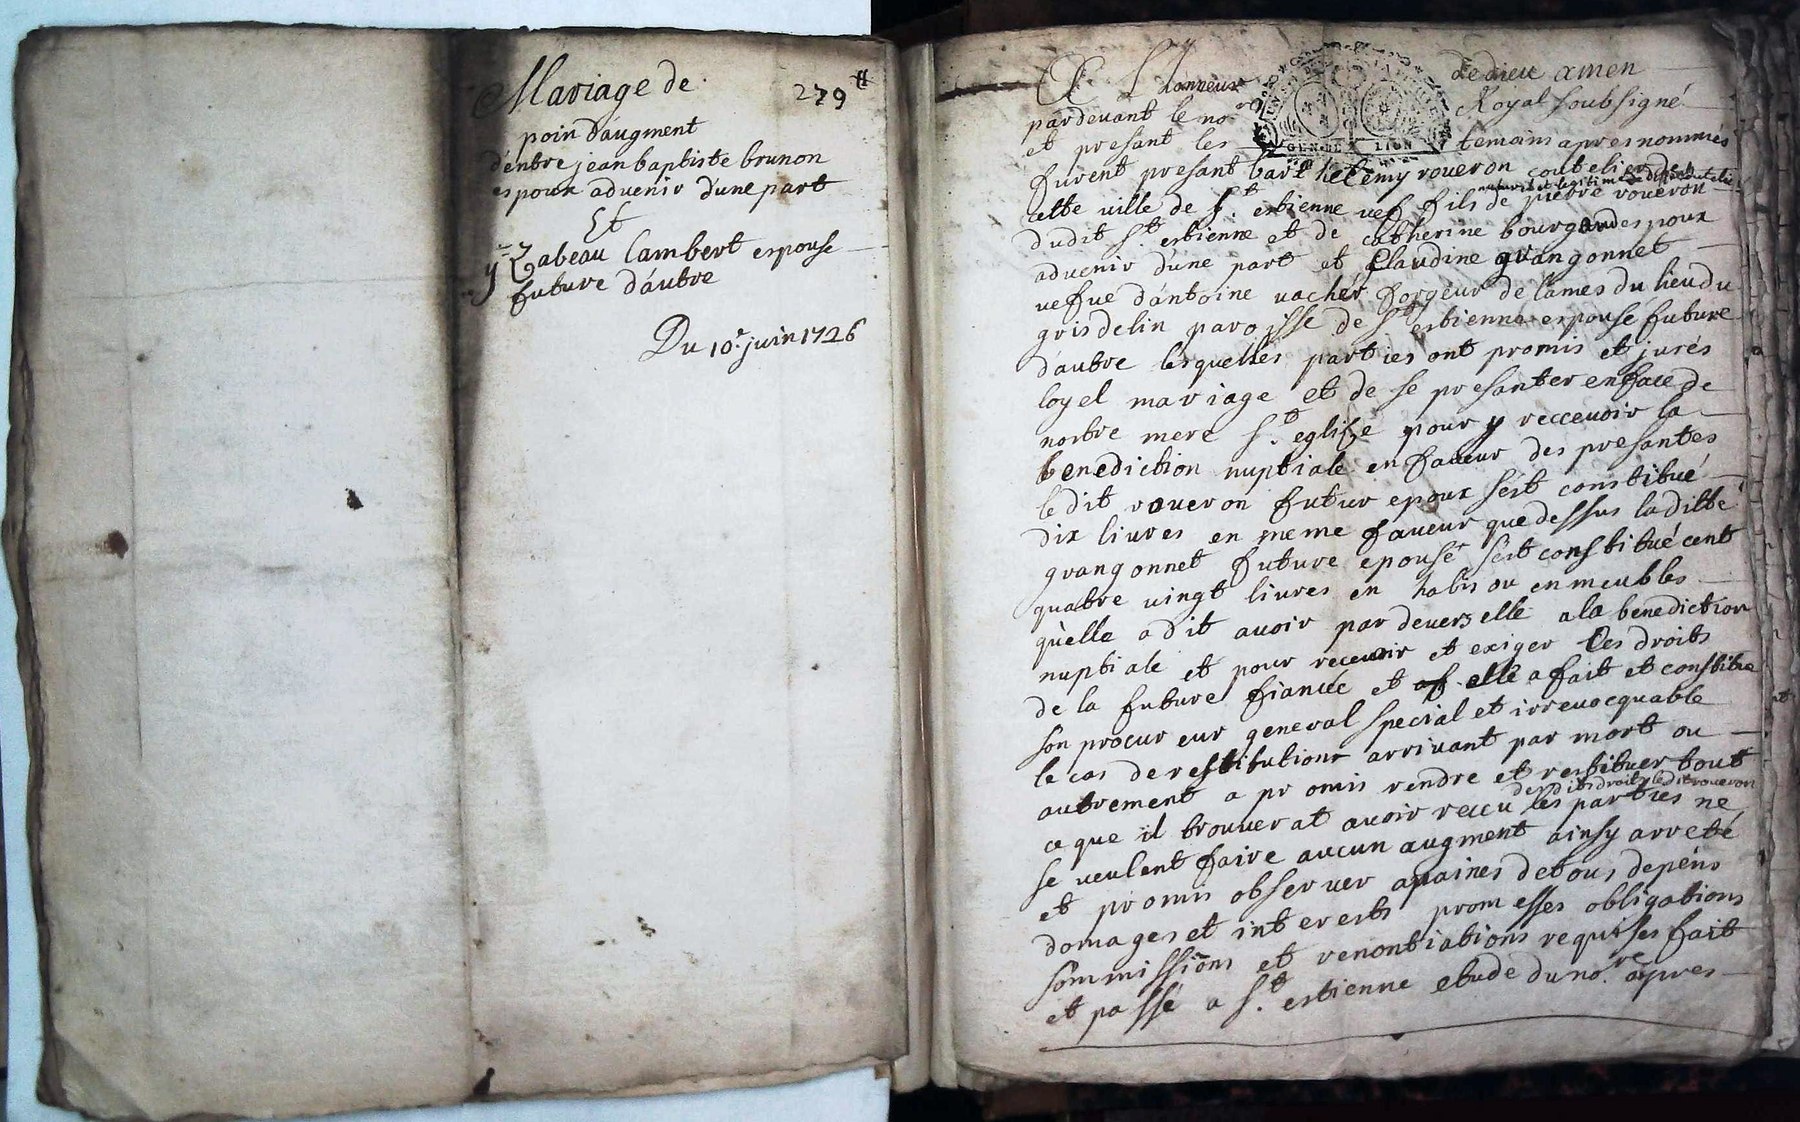 Mariage de
279#
poin d'augment
d'entre jean baptiste brunon
espoux advenir d'une part
Et
yzabeau lambert espouse
future d'autre
Du 10e juin 1726
A L'honneur de dieu amen
pardevant le no Royal soubsigné
et presant les temains apres nommés
GEN DE LION
furent presant barthelemy roveron coutelier de
naturel et legitime de deffunt
cette ville de St estienne vef fils de pierre roveron
dudit St estienne et de catherine bourgand espoux
advenir d'une part et Claudine grangonnet
vefue d'antoine vacher forgeur de lames du lieu du
grisdelin paroisse de St estienne espouse future
d'autre lesquelles parties ont promis et jurés
loyel mariage et de se presanter en face de
nostre mere Ste eglise pour y reccevoir la
benediction nuptiale en faveur des presantes
ledit roveron futur epoux s'est constitué
dix livres en meme faveur que dessus laditte
grangonnet future epouse s'est constitué cent
quatre vingt livres en habis ou en meubles
qu'elle a dit avoir pardevers elle a la benediction
nuptiale et pour recevoir et exiger les droits
de la future fiancée et elle a fait et constitue
son procureur general special et irrevocquable
le cas de restitutions arrivant par mort ou
autrement a promis rendre et restituer tout
desdits droits ledit roveron
ce que il trouverat avoir reccu les parties ne
se veulent faire aucun augment ainsy arreté
et promis observer apaines de tous depens
domages et interests promesses obligations
sommissions et renontiations requises fait
et passé a St estienne etude du nore apres